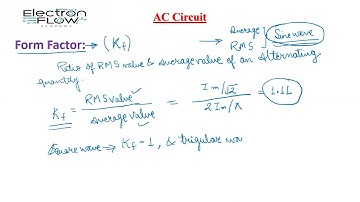 Electron
FLOW
ACADEMY
AC Circuit
Form Factor:→ (Kf) → Average RMS ] Sine wave
Ratio of RMS value & Average value of an Alternating
quantity.
Kf = RMS value / Average value = Im/√2 / 2Im/π = 1.11
Square wave → Kf = 1, & trigular wav